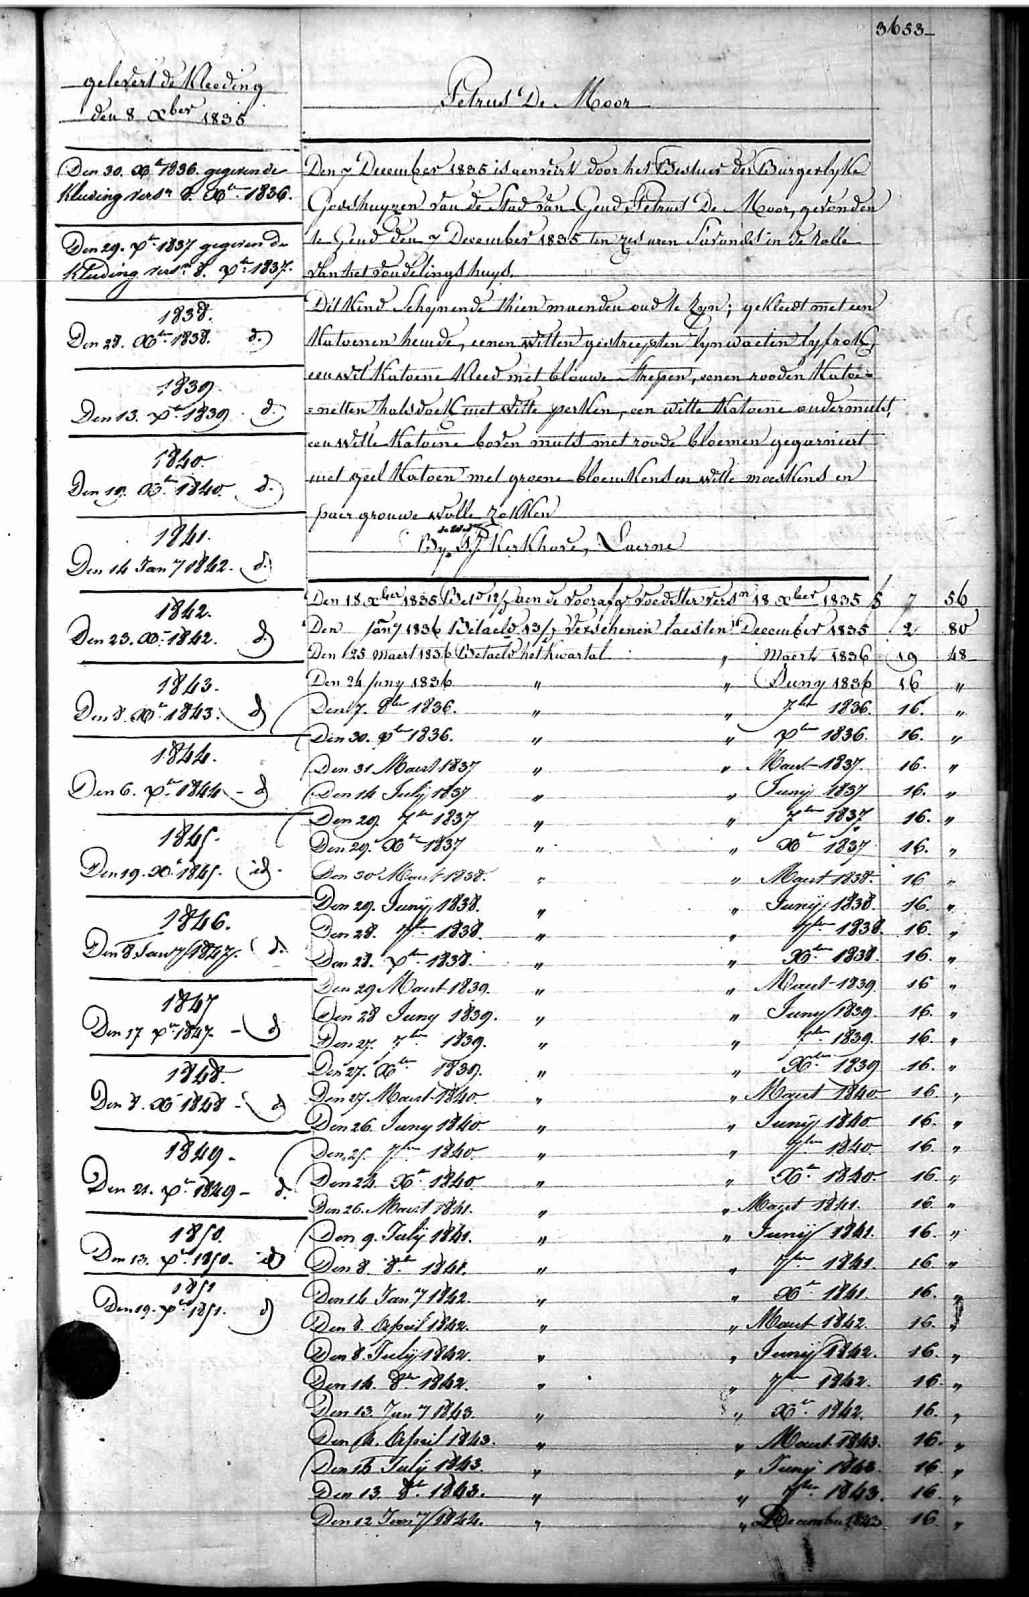 3653
gelevert de Kleeding
den 8 Xber 1835
Den 30. Xbr 1836. gegeven de
Kleeding versn 8. Xbr 1836.
Den 29. Xbr 1837 gegeven de
Kleeding versn 8. Xbr 1837.
1838.
Den 28. Xbr 1838. d.
1839.
Den 13. Xbr 1839. d.
1840.
Den 19. Xbr 1840. d.
1841.
Den 14 Jany 1842. d.
1842.
Den 23. Xbr 1842. d
1843.
Den 8. Xbr 1843. d
1844.
Den 6. Xbr 1844 - d
1845.
Den 19. Xbr 1845. id.
1846.
Den 8 Jany 1847. d.
1847
Den 17 Xbr 1847. - d
1848.
Den 8. Xbr 1848 - d
1849.
Den 21. Xbr 1849 - d.
1850.
Den 13. Xbr 1850. id
1851
Den 19. Xbr 1851. d
Petrus De Moor
Den 7 December 1835 is aenveirt door het Bestuer der Burgerlyke
Godshuyzen van de Stad van Gend Petrus De Moor, gevonden
te Gend den 7 December 1835 ten zes uren s'avonds in de rolle
van het vondelingshuys.
Dit Kind schynende thien maenden oud te zyn; gekleedt met een
Katoenen hemde, eenen witten gestreepten lynwaeten lyfrok,
een wit Katoene Kleed met blauwe strepen, eenen rooden Katoe=
=netten halsdoek met witte perken, een witte Katoene ondermuts,
een witte Katoene boven muts met roode bloemen gegarniert
met geel Katoen met groene bloemkens en witte moeskens en
paer grouwe wolle zokken
By Kerkhove, Laerne
Den 18 Xber 1835 Bet. 12/7 aen de voorafge voedster versn 18 Xber 1835 7 56
Den Jany 1836 Betaeld 13/7 verschenen laesten December 1835 2 80
Den 25 Maert 1836 Betaeld het kwartal " Maert 1836 19 48
Den 24 Juny 1836 " " Juny 1836 16 "
Den 7. 8br 1836. " " 7ber 1836. 16. "
Den 30. Xbr 1836. " " Xber 1836. 16. "
Den 31 Maert 1837 " " Maert 1837. 16. "
Den 14 July 1837 " " Juny 1837 16. "
Den 29. 7ber 1837 " " 7ber 1837 16. "
Den 29. Xbr 1837 " " Xbr 1837 16. "
Den 30 Maert 1838. " " Maert 1838. 16 "
Den 29. Juny 1838. " " Juny 1838. 16. "
Den 28. 7ber 1838. " " 7ber 1838. 16. "
Den 28. Xbr 1838. " " Xbr 1838. 16. "
Den 29 Maert 1839. " " Maert 1839 16 "
Den 28 Juny 1839. " " Juny 1839 16. "
Den 27. 7ber 1839. " " 7ber 1839. 16. "
Den 27. Xber 1839. " " Xber 1839 16. "
Den 27. Maert 1840 " " Maert 1840 16. "
Den 26. Juny 1840 " " Juny 1840. 16. "
Den 25. 7ber 1840 " " 7ber 1840. 16. "
Den 24. Xbr 1840. " " Xbr 1840. 16. "
Den 26. Maert 1841. " " Maert 1841. 16. "
Den 9. July 1841. " " Juny 1841. 16. "
Den 8. 8br 1841. " " 7ber 1841 16 "
Den 14 Jany 1842. " " Xbr 1841. 16. "
Den 8. April 1842. " " Maert 1842. 16. "
Den 8. July 1842. " " Juny 1842. 16. "
Den 14. 8br 1842. " " 7ber 1842. 16. "
Den 13. Jany 1843. " " Xbr 1842. 16. "
Den 14. April 1843. " " Maert 1843. 16. "
Den 15 July 1843. " " Juny 1843. 16. "
Den 13. 8br 1843. " " 7ber 1843. 16. "
Den 12 Jany 1844. " " December 1843 16. "